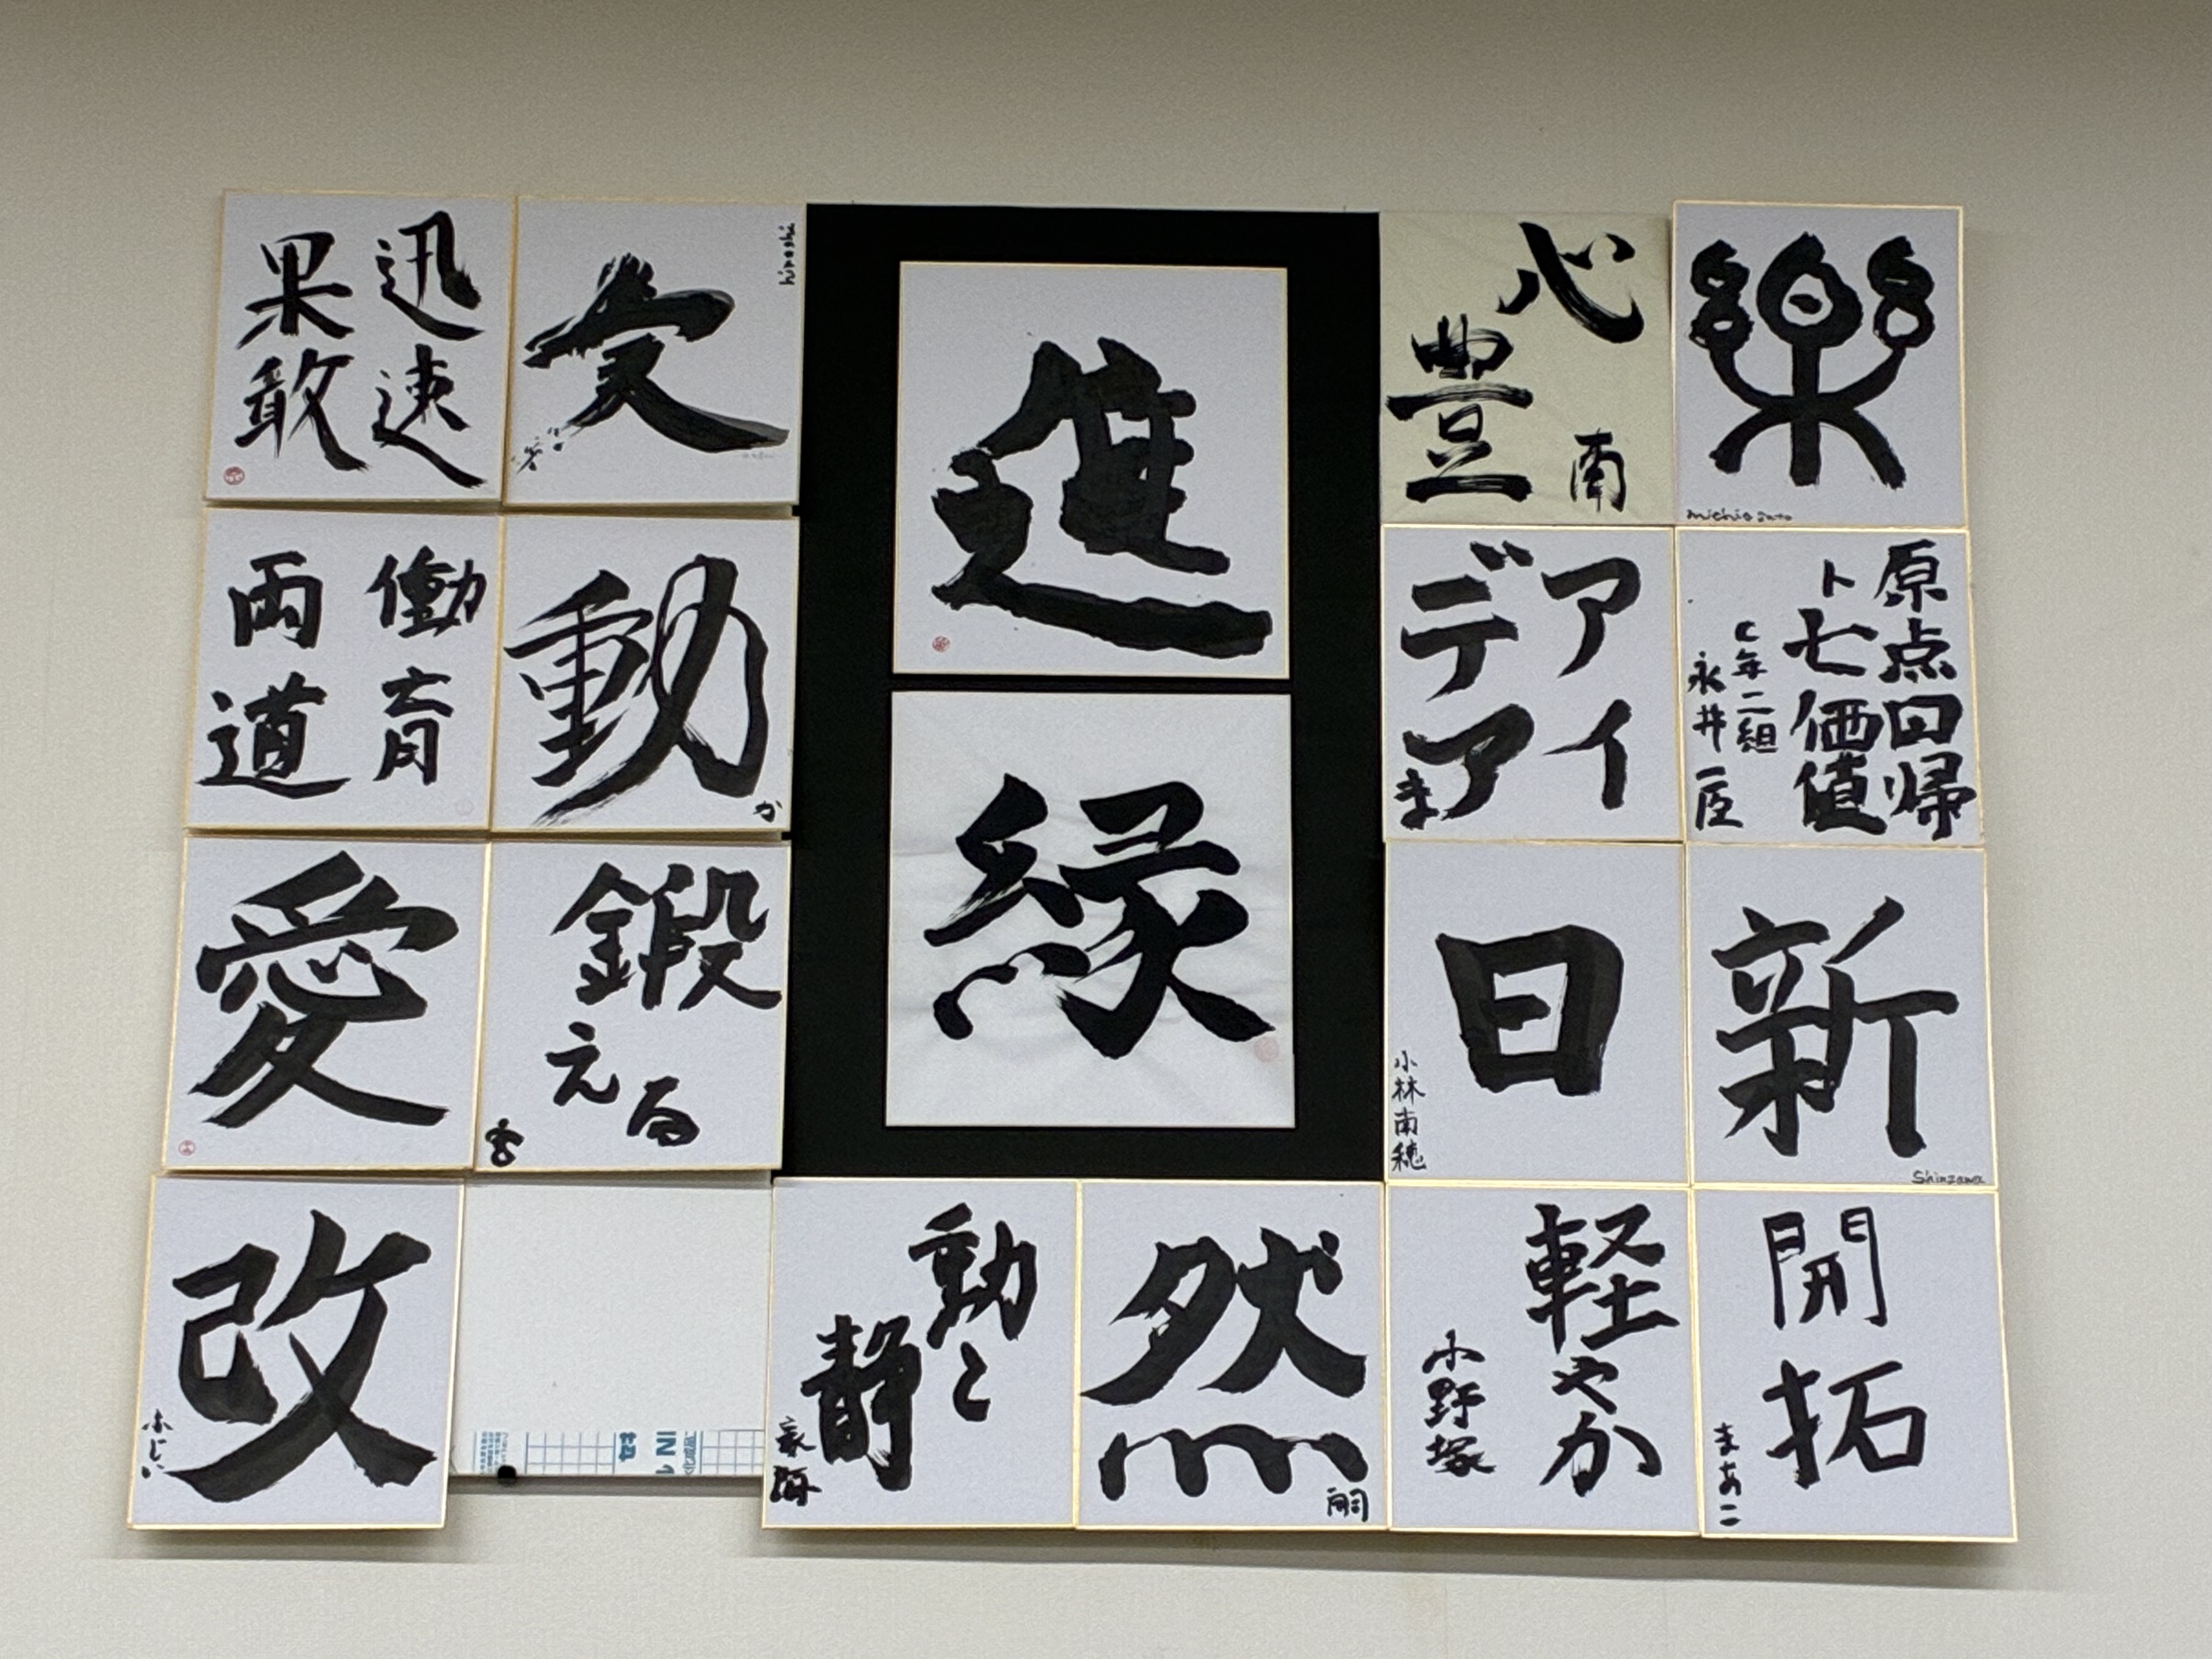 迅速
果敢
hiroshi
進
心
豊
南
楽
michio sato
働育
両道
動
か
アイ
デア
ま
原点回帰
ト七価値
C年二組
永井一臣
愛
鍛
える
縁
日
小林南穂
新
Shinzawa
改
ふじい
動と
静
然
嗣
軽やか
小野塚
開拓
まあこ